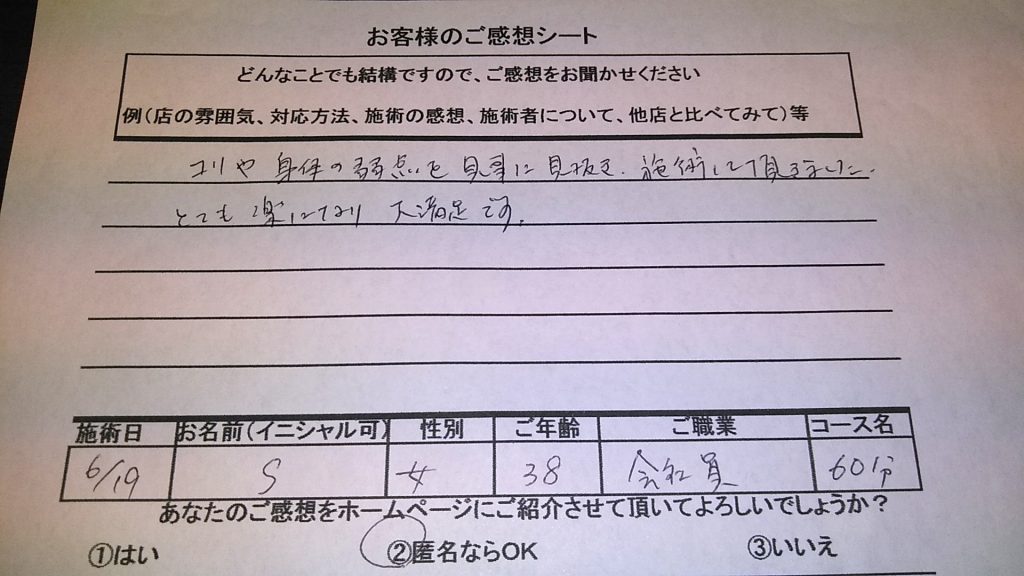 お客様のご感想シート
どんなことでも結構ですので、ご感想をお聞かせください
例(店の雰囲気、対応方法、施術の感想、施術者について、他店と比べてみて)等
コリや身体の弱点を見事に見抜き、施術して頂きました。
とても楽になり大満足です。
施術日 お名前(イニシャル可) 性別 ご年齢 ご職業 コース名
6/19 S 女 38 会社員 60分
あなたのご感想をホームページにご紹介させて頂いてよろしいでしょうか?
①はい ②匿名ならOK ③いいえ